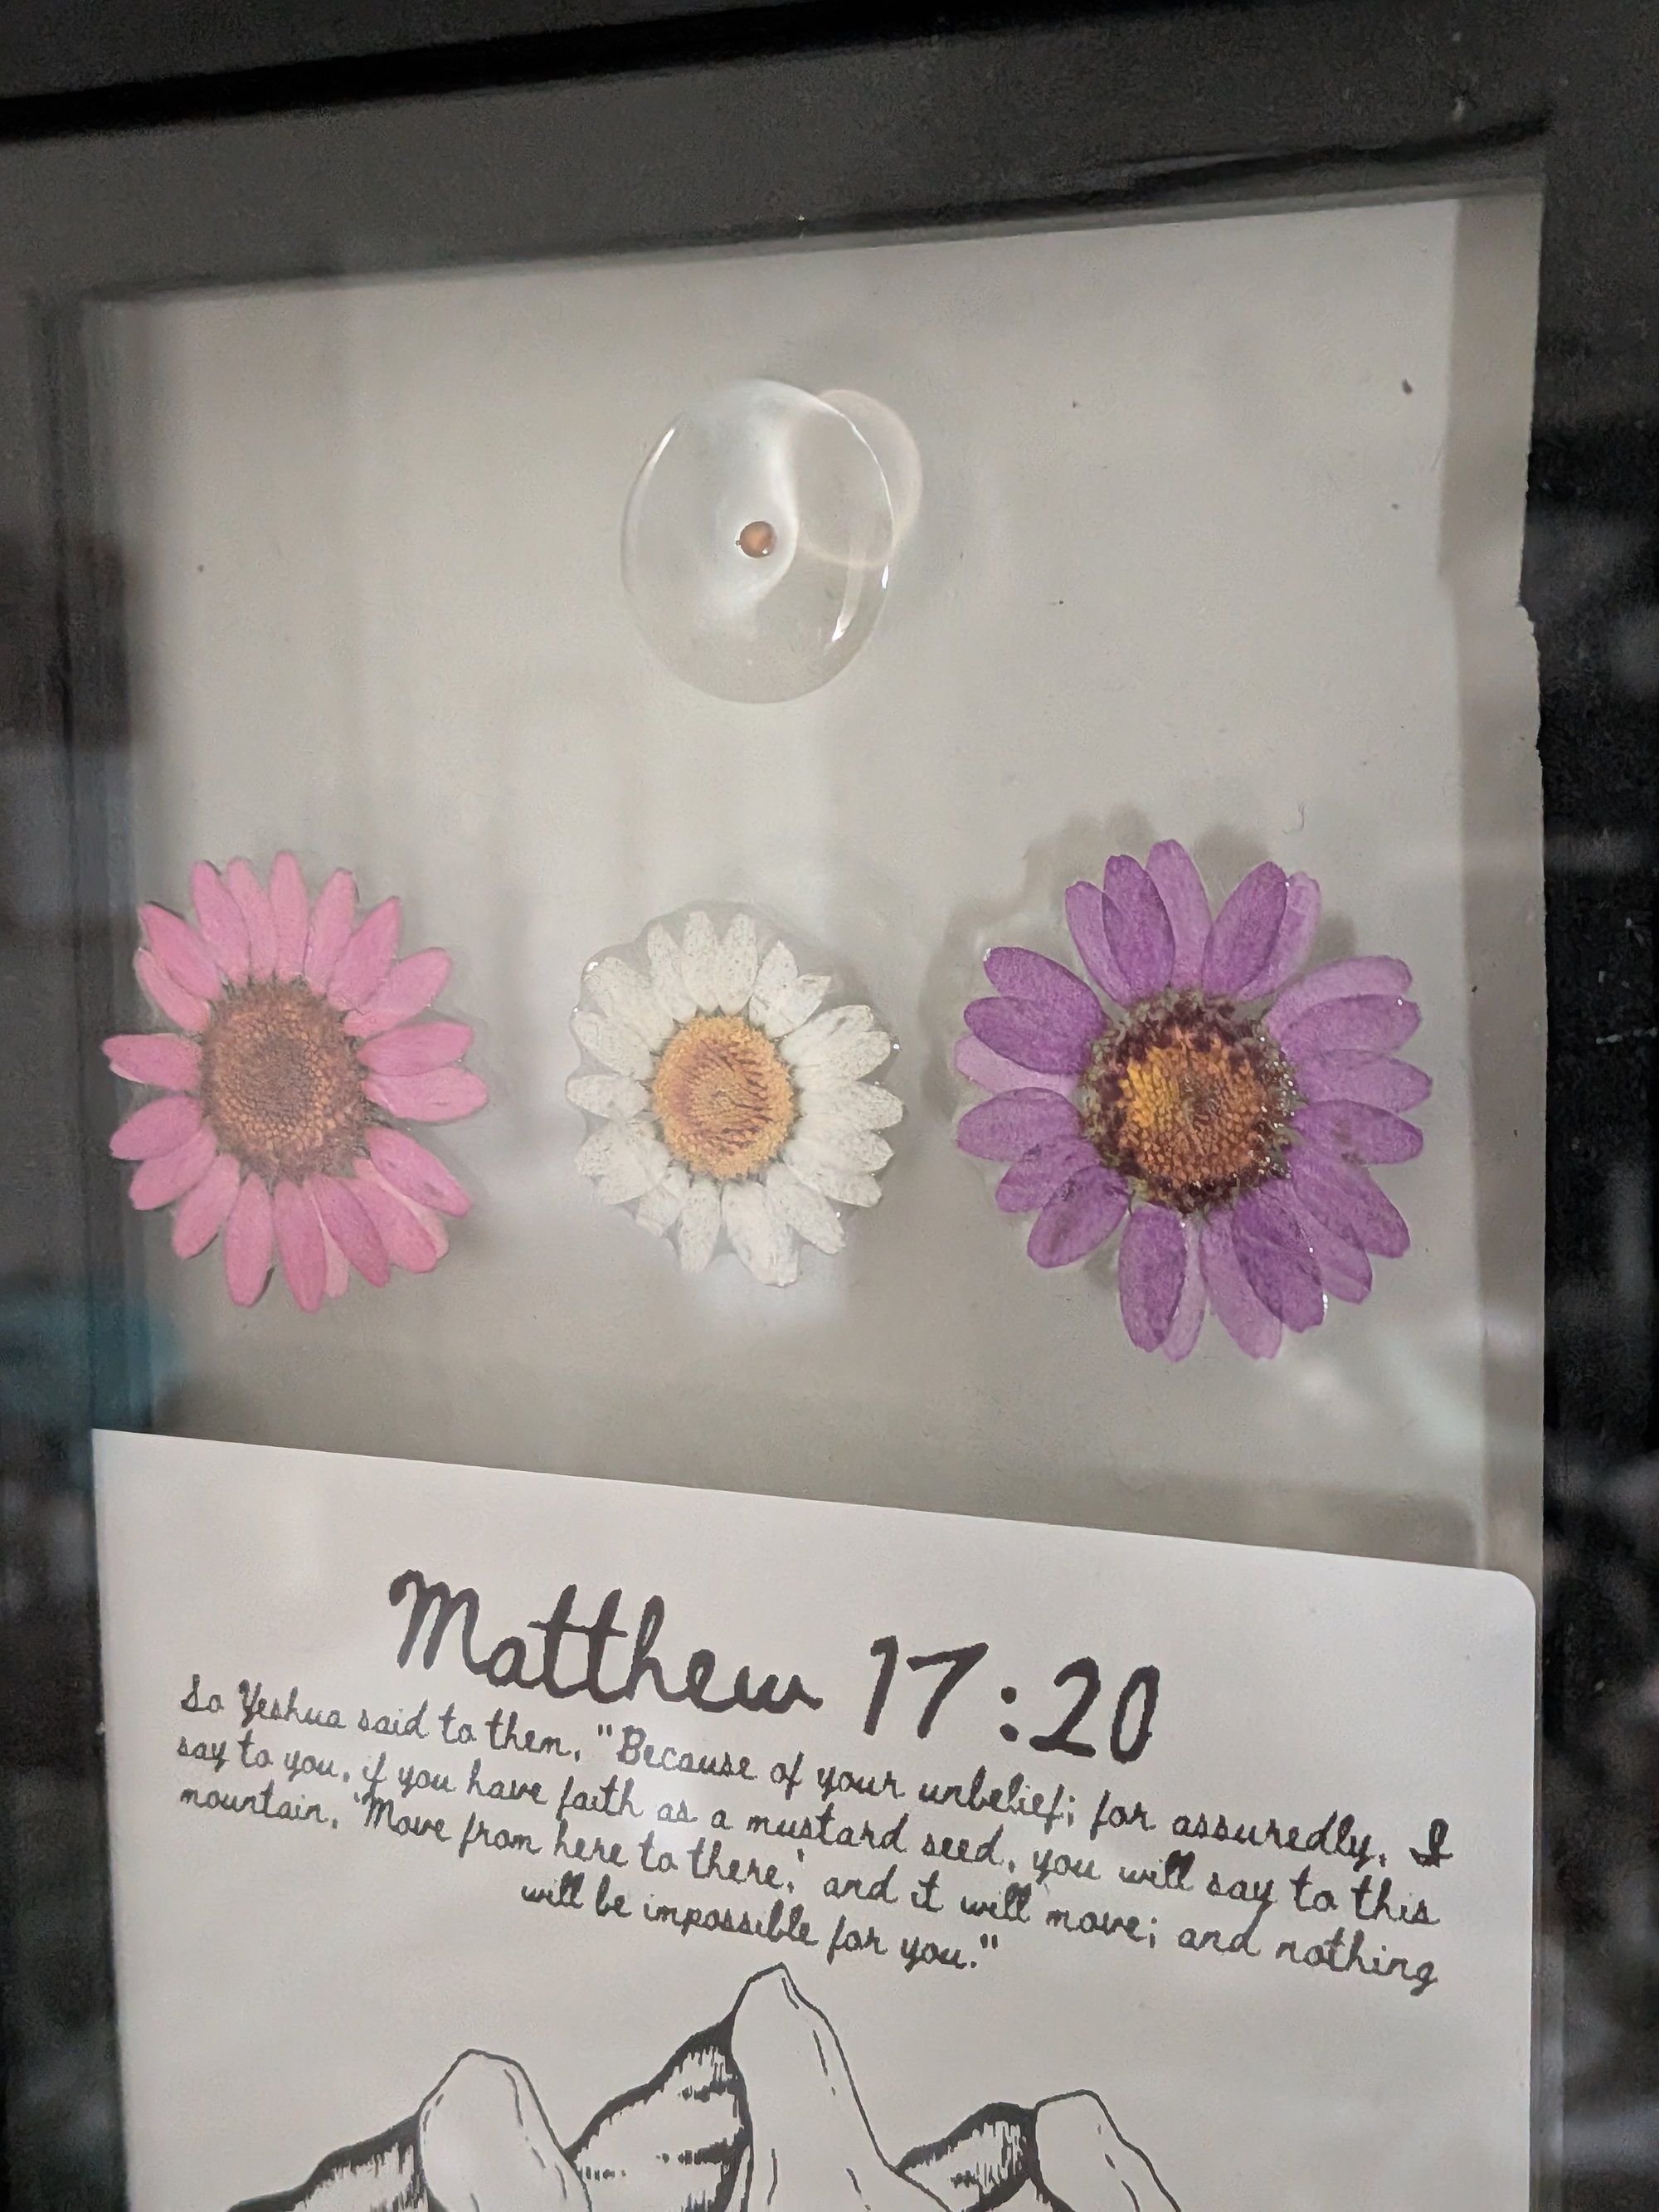 Matthew 17:20
So Yeshua said to them, "Because of your unbelief; for assuredly, I
say to you, if you have faith as a mustard seed, you will say to this
mountain, 'Move from here to there,' and it will move; and nothing
will be impossible for you."